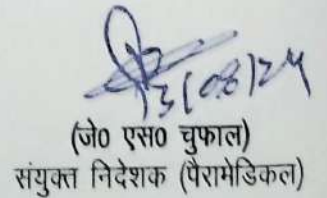 3/08/24
(जे0 एस0 चुफाल)
संयुक्त निदेशक (पैरामेडिकल)